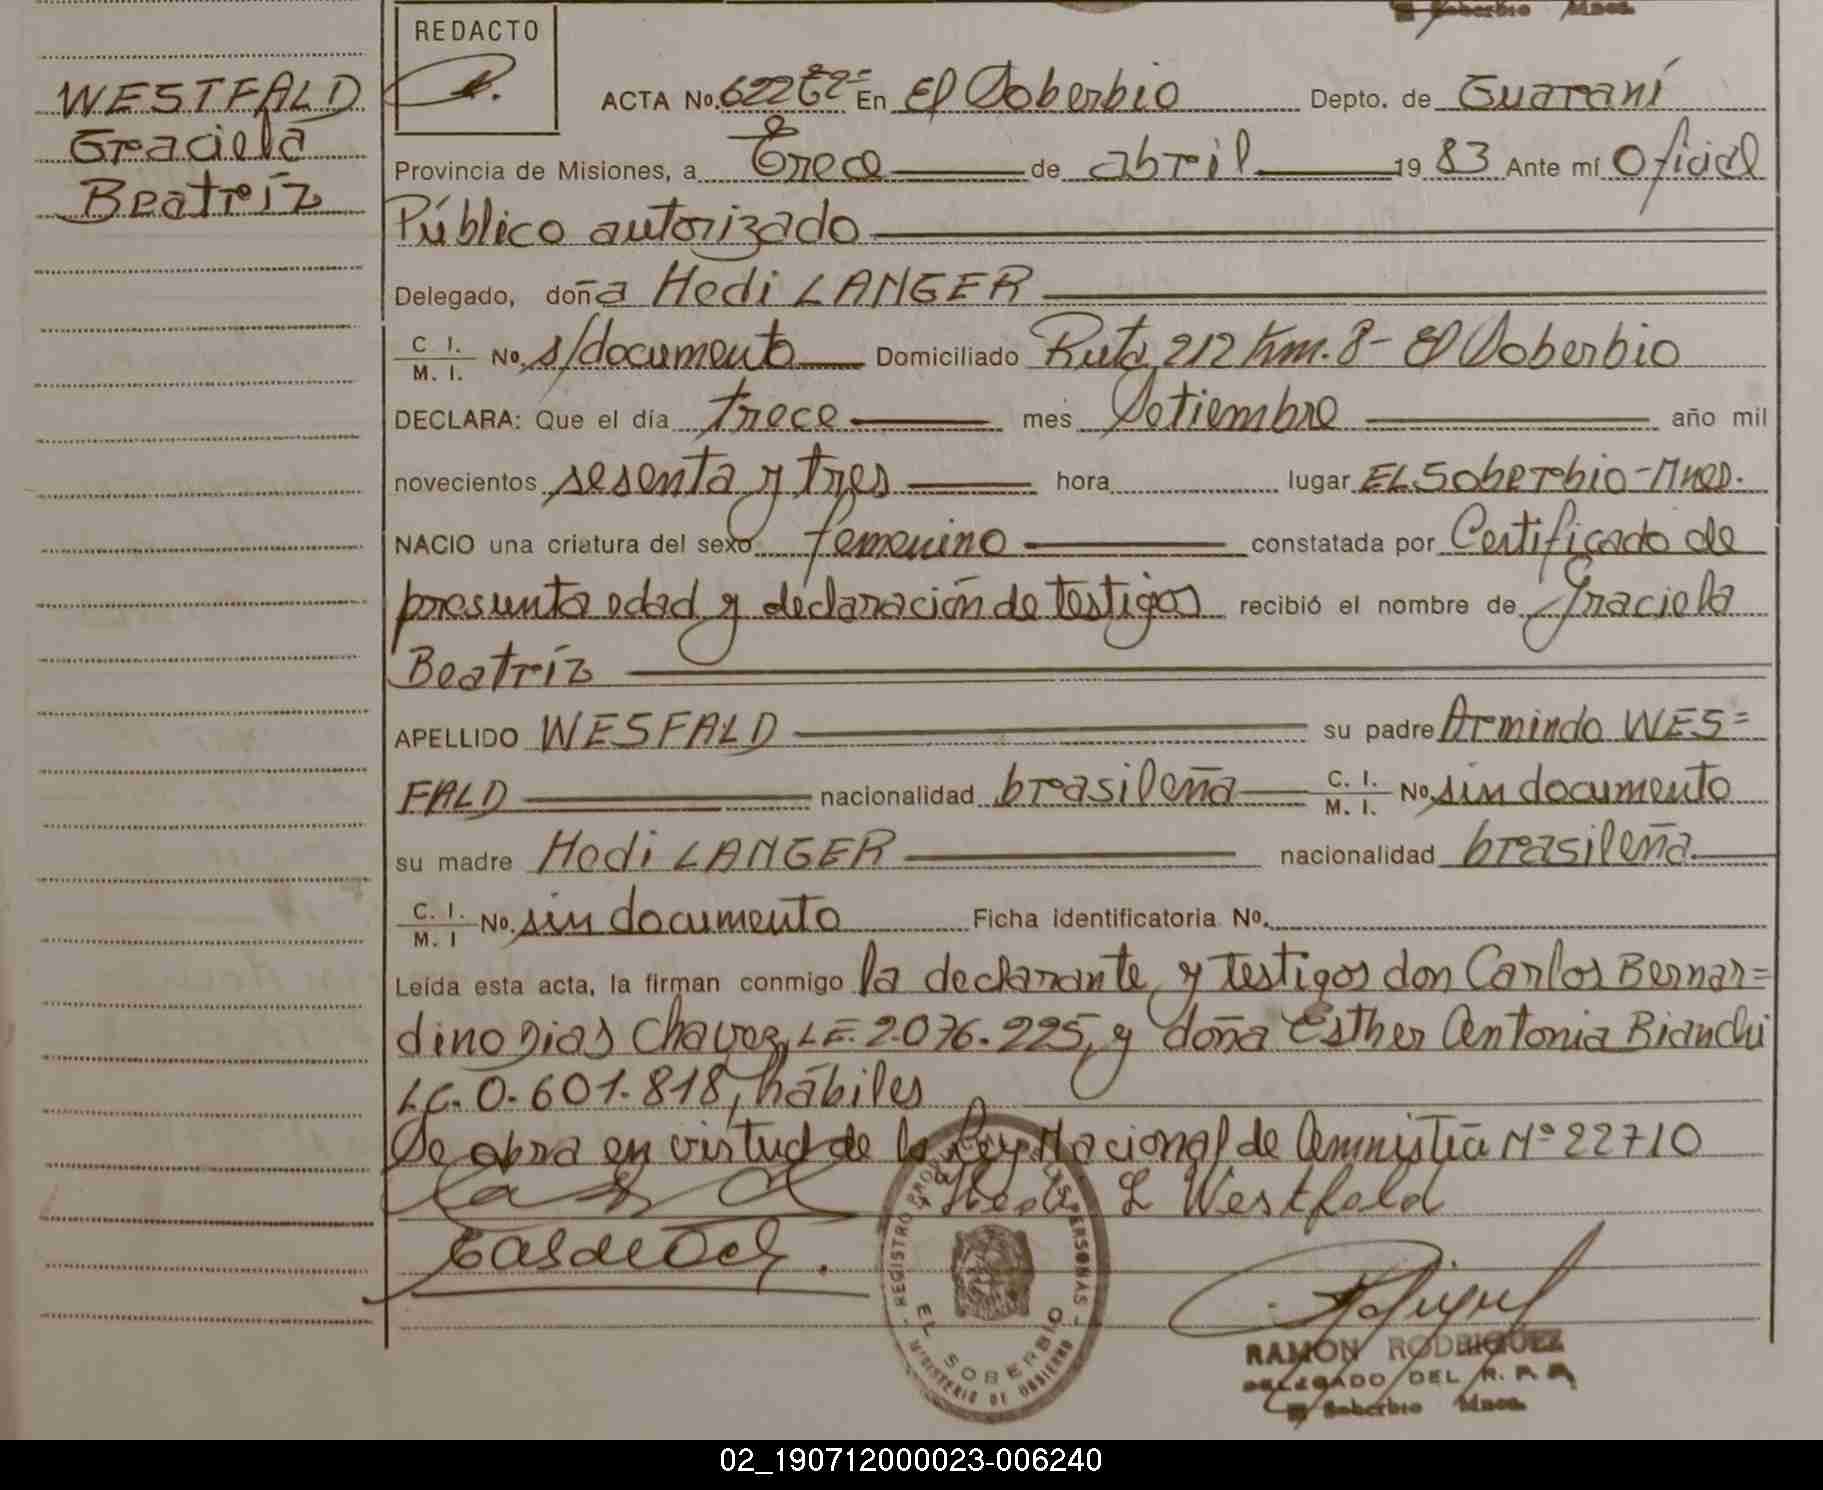 Soberbio Mnes.
REDACTO
WESTFALD
Graciela
Beatríz
ACTA No. 622 En El Soberbio Depto. de Guaraní
Provincia de Misiones, a Trece de abril 19 83 Ante mí Oficial
Público autorizado
Delegado, doña Hedi LANGER
C I. M. I. No. s/documento Domiciliado Ruta 212 Km. 8 - El Soberbio
DECLARA: Que el día trece mes Setiembre año mil
novecientos sesenta y tres hora lugar EL Soberbio - Mnes.
NACIO una criatura del sexo femenino constatada por Certificado de
presunta edad y declaración de testigos recibió el nombre de Graciela
Beatríz
APELLIDO WESFALD su padre Armindo WES=
FALD nacionalidad brasileña C. I. M. I. No. sin documento
su madre Hedi LANGER nacionalidad brasileña
C. I. M. I No. sin documento Ficha identificatoria No.
Leída esta acta, la firman conmigo la declarante y testigos don Carlos Bernar=
dino Dias Chavez, L.E. 2.076.225, y doña Esther Antonia Bianchi
L.C. 0.601.818, hábiles
Se obra en virtud de la Ley Nacional de Amnistía Nº 22710
Hedi L Westfald
REGISTRO PROV. PERSONAS
EL SOBERBIO
MINISTERIO DE GOBIERNO
RAMON RODRIGUEZ
DELEGADO DEL R. P. P.
El Soberbio Mnes.
02_190712000023-006240